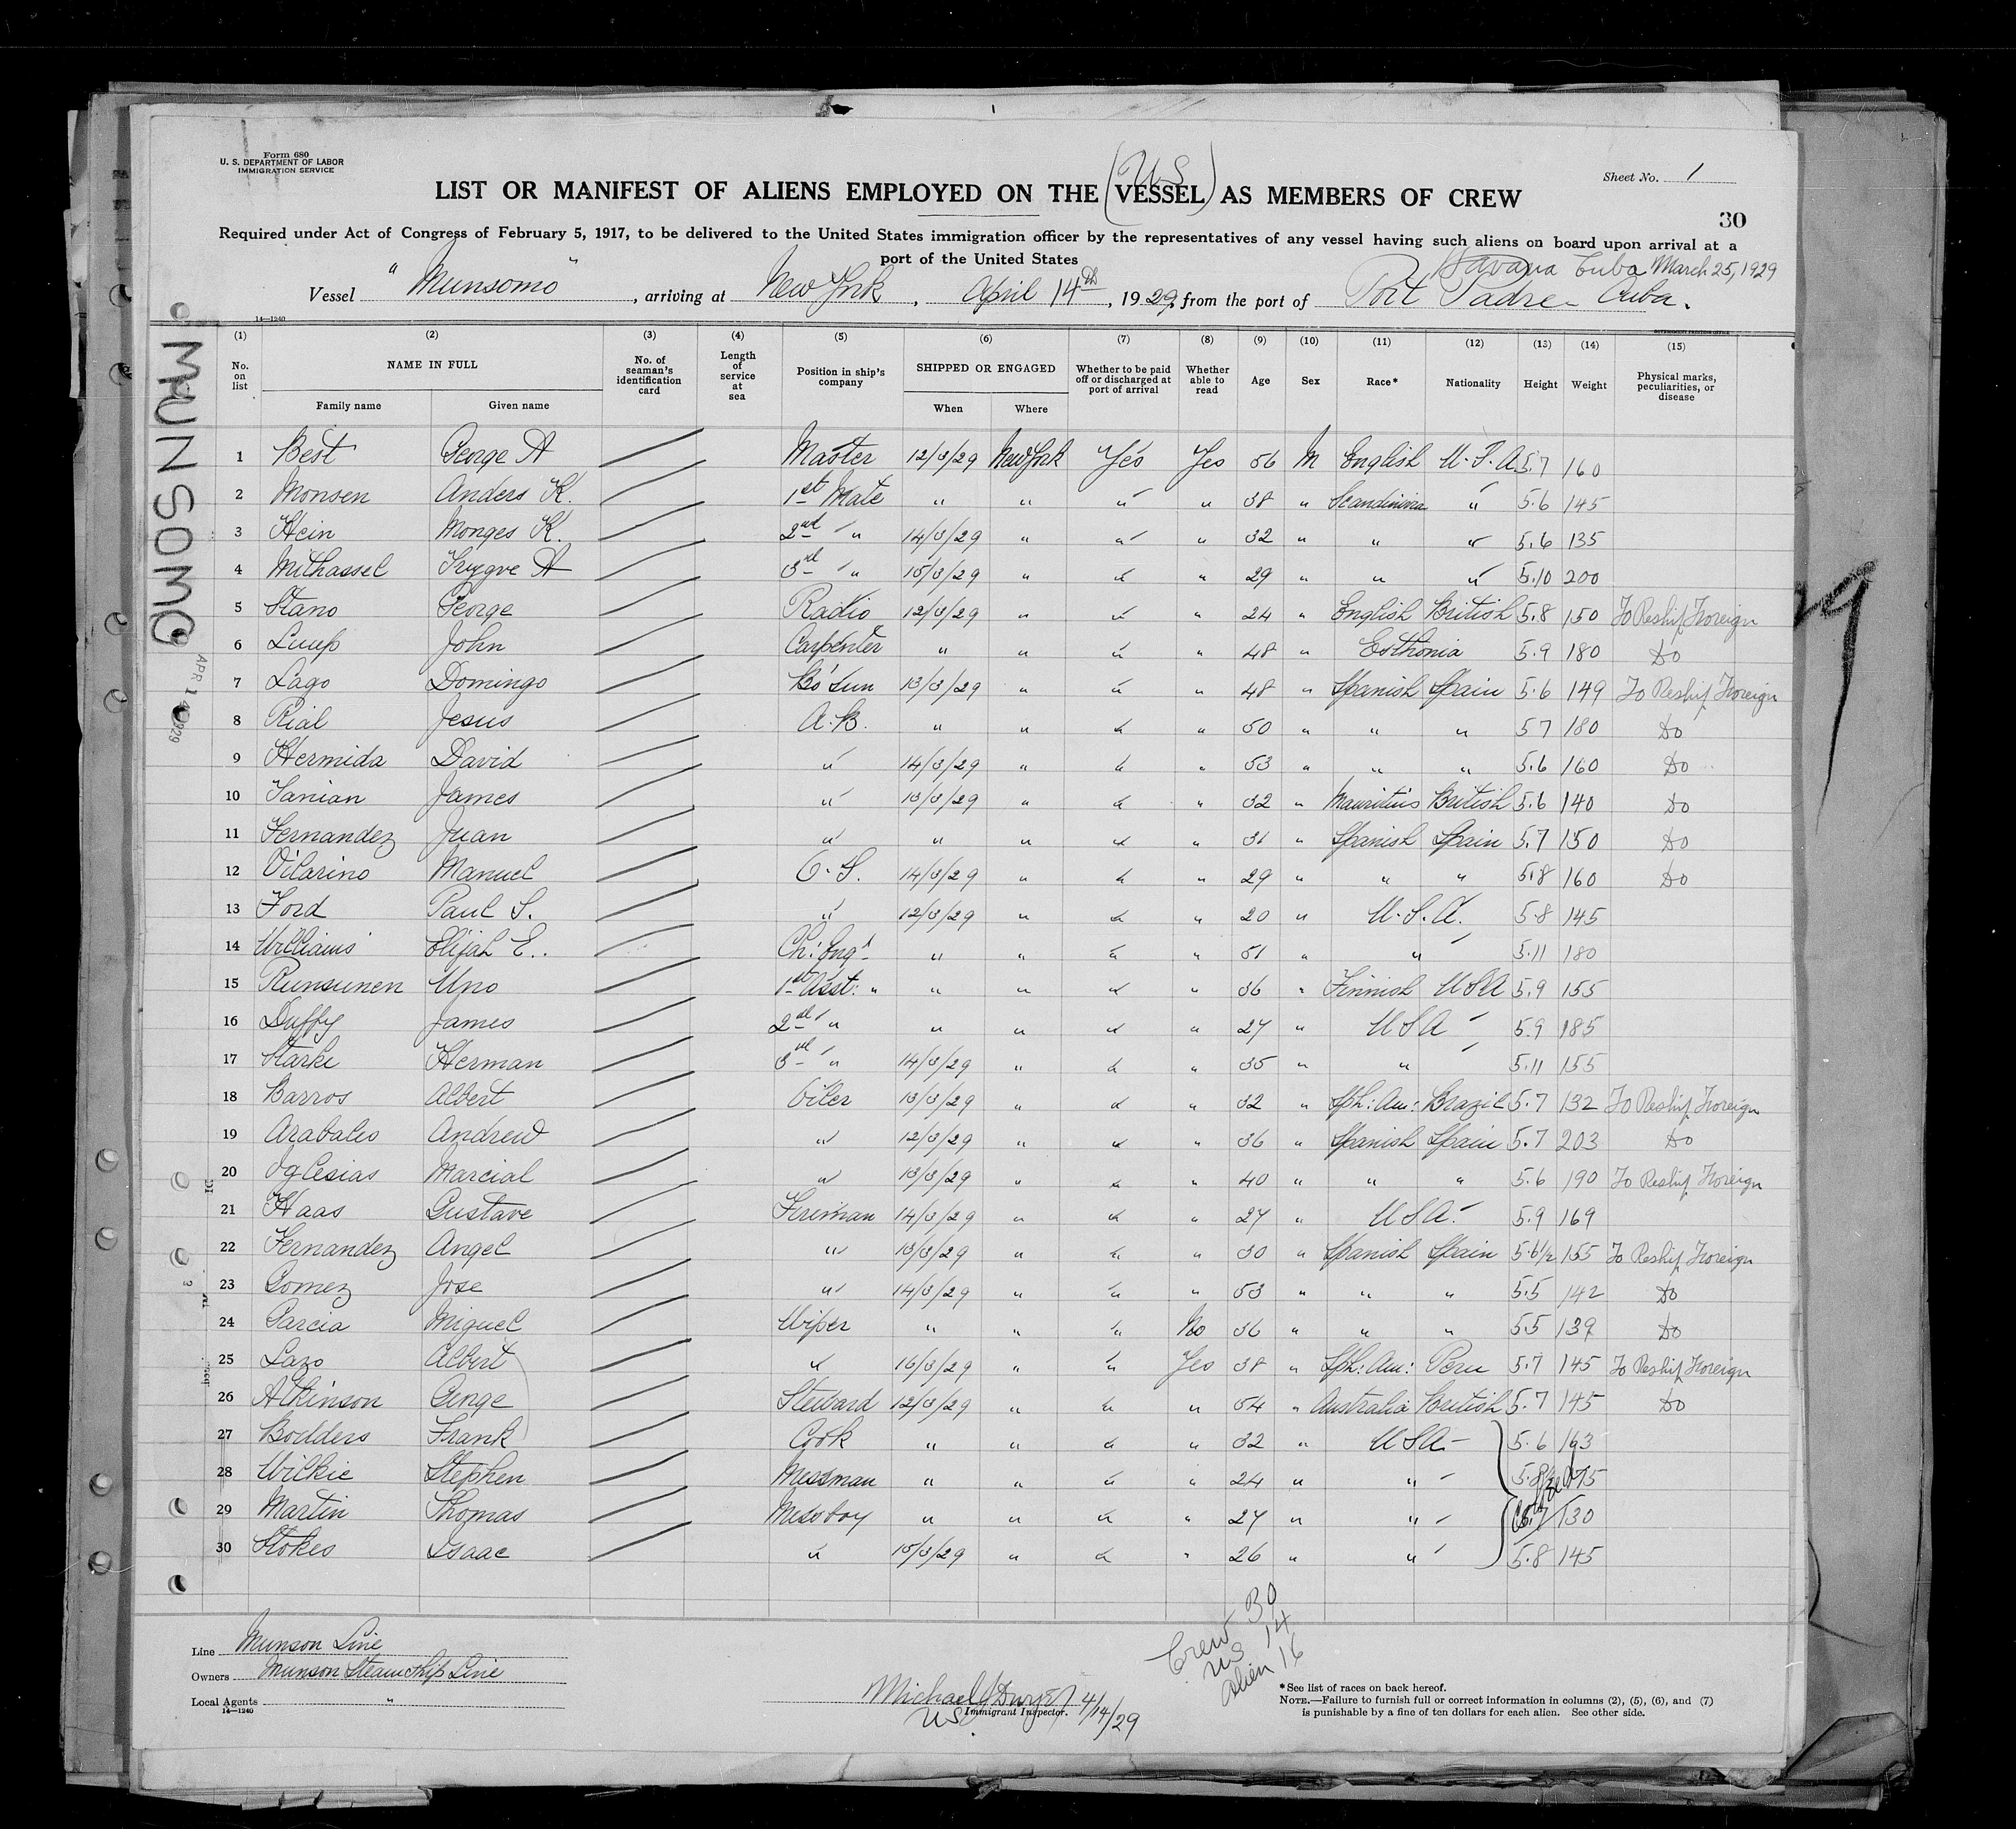 Form 680
U. S. DEPARTMENT OF LABOR
IMMIGRATION SERVICE
(US)
Sheet No. 1
LIST OR MANIFEST OF ALIENS EMPLOYED ON THE VESSEL AS MEMBERS OF CREW
30
Required under Act of Congress of February 5, 1917, to be delivered to the United States immigration officer by the representatives of any vessel having such aliens on board upon arrival at a
port of the United States
Havana Cuba March 25, 1929
Vessel "Munsomo", arriving at New York, April 14th, 1929, from the port of Port Padre - Cuba.
14—1240
MUNSOMO
APR 14 1929
(1) (2) (3) (4) (5) (6) (7) (8) (9) (10) (11) (12) (13) (14) (15)
No. on list NAME IN FULL No. of seaman's identification card Length of service at sea Position in ship's company SHIPPED OR ENGAGED Whether to be paid off or discharged at port of arrival Whether able to read Age Sex Race* Nationality Height Weight Physical marks, peculiarities, or disease
Family name Given name When Where
1 Best George A Master 12/3/29 New York Yes Yes 56 M English U.S.A. 5.7 160
2 Monsen Anders K. 1st Mate " " " " 38 " Scandinivia " 5.6 145
3 Hein Monges K. 2nd " 14/3/29 " " " 32 " " " 5.6 135
4 Mithassel Trygve A 3rd " 15/3/29 " " " 29 " " " 5.10 200
5 Stano George Radio 12/3/29 " " " 24 " English British 5.8 150 To Reship Foreign
6 Luup John Carpenter " " " " 48 " Esthonia 5.9 180 Do
7 Lago Domingo Bo'sun 13/3/29 " " " 48 " Spanish Spain 5.6 149 To Reship Foreign
8 Rial Jesus A.B. " " " " 50 " " " 5.7 180 Do
9 Hermida David " 14/3/29 " " " 53 " " " 5.6 160 Do
10 Sanian James " 13/3/29 " " " 32 " Mauritius British 5.6 140 Do
11 Fernandez Juan " " " " " 31 " Spanish Spain 5.7 150 Do
12 Vilarino Manuel O.S. 14/3/29 " " " 29 " " " 5.8 160 Do
13 Ford Paul S. " 12/3/29 " " " 20 " U.S.A. 5.8 145
14 Williams Elijah E.. Ch: Eng' " " " " 51 " " 5.11 180
15 Runsunen Uno 1st Asst: " " " " " 36 " Finnish USA 5.9 155
16 Duffy James 2nd " " " " " 27 " USA 5.9 185
17 Starke Herman 3rd " 14/3/29 " " " 35 " " 5.11 155
18 Barros Albert Oiler 13/3/29 " " " 32 " Sph: Am: Brazil 5.7 132 To Reship Foreign
19 Arabales Andrew " 12/3/29 " " " 36 " Spanish Spain 5.7 203 Do
20 Yglesias Marcial " 13/3/29 " " " 40 " " " 5.6 190 To Reship Foreign
21 Haas Gustave Fireman 14/3/29 " " " 27 " USA. 5.9 169
22 Fernandez Angel " 13/3/29 " " " 30 " Spanish Spain 5.6½ 155 To Reship Foreign
23 Gomez Jose " 14/3/29 " " " 53 " " " 5.5 142 Do
24 Garcia Miguel Wiper " " " No 36 " " " 5.5 139 Do
25 Lazo Albert " 16/3/29 " " Yes 38 " Sph: Am: Peru 5.7 145 To Reship Foreign
26 Atkinson George Steward 12/3/29 " " " 54 " Australia British 5.7 145 Do
27 Bodders Frank Cook " " " " 32 " USA 5.6 163
28 Wilkie Stephen Messman " " " " 24 " " 5.8½ 175
29 Martin Thomas Messboy " " " " 27 " " 5.7 130
30 Stokes Isaac " 15/3/29 " " " 26 " " 5.8 145
Crew 30
US 14
Alien 16
Line Munson Line
Owners Munson Steamship Line
Local Agents "
14—1240
Michael J Dwyer 4/14/29
US Immigrant Inspector.
*See list of races on back hereof.
NOTE.—Failure to furnish full or correct information in columns (2), (5), (6), and (7)
is punishable by a fine of ten dollars for each alien. See other side.